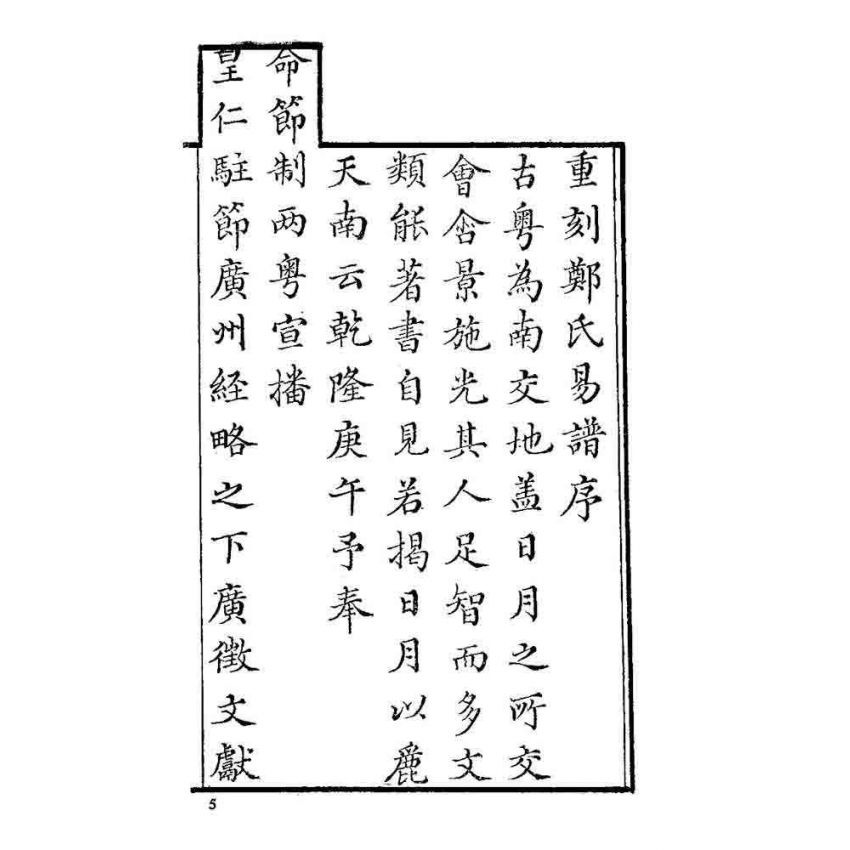 重刻鄭氏易譜序
古粤為南交地盖日月之所交
會含景施光其人足智而多文
類能著書自見若揭日月以麗
天南云乾隆庚午予奉
命節制两粤宣播
皇仁駐節廣州経略之下廣徵文獻
5